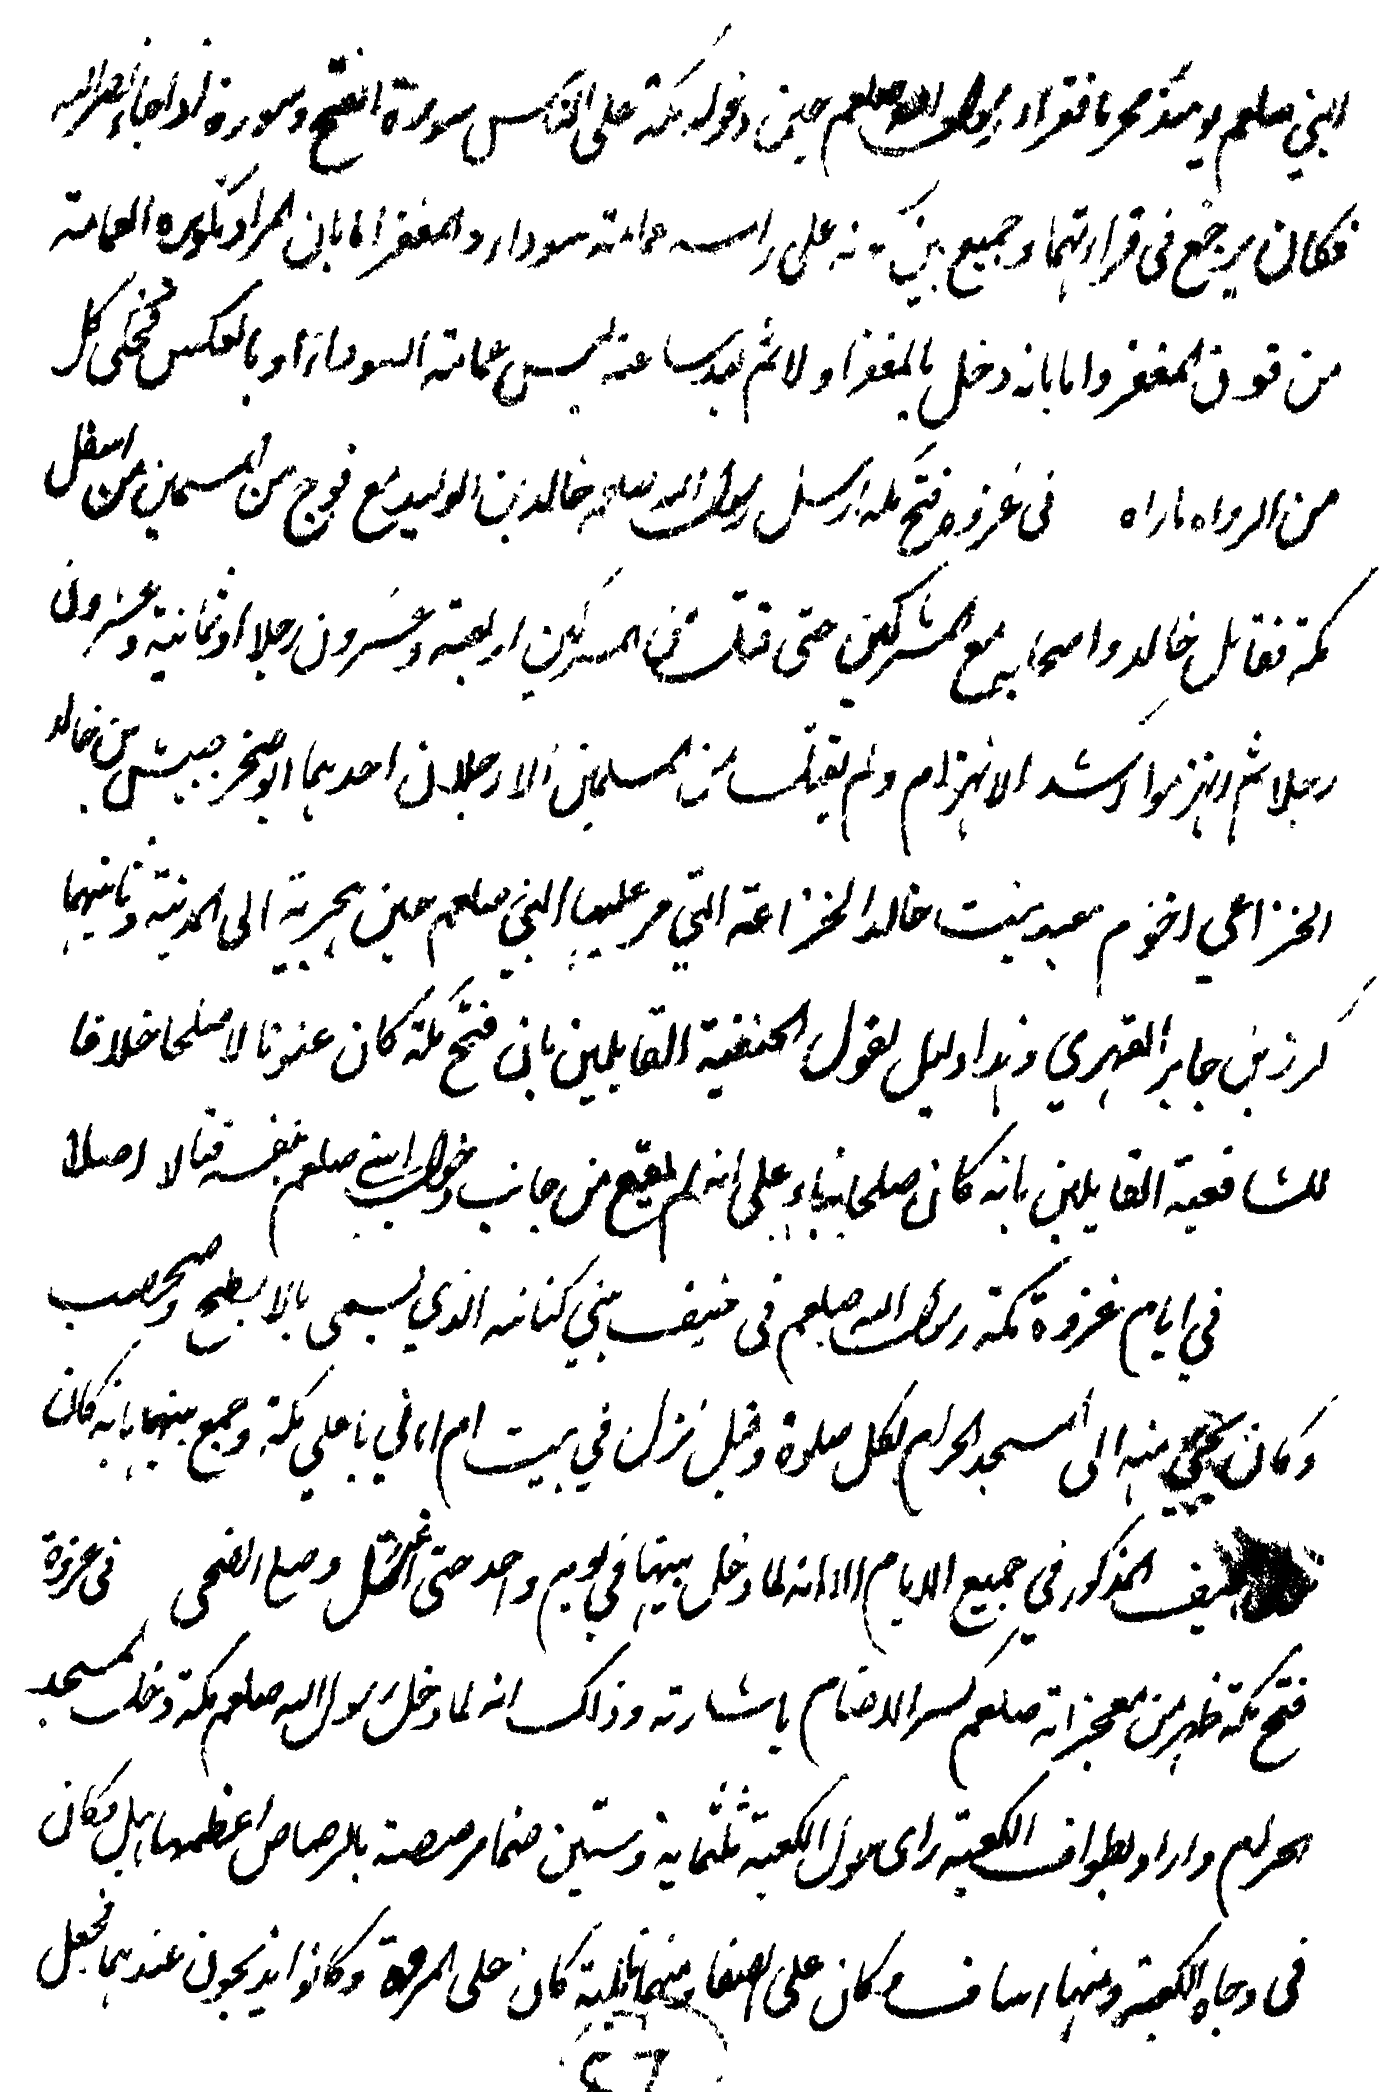 النبي صلعم يومئذ محرما فقراء رسول الله صلعم حين دخوله مكة على الناس سورة الفتح وسورة اذا جاء نصر الله
فكان يرجع في قراءتهما وجميع بين نه على راسه عمامته سوداء والمغفر اما بان المراد تكويره العمامة
من فوق المغفر واما بانه دخل بالمغفر اولا ثم بعد ساعته لبس عمامته السوداء او بالعكس فحكى كل
من الرواه ماراه في غزوة فتح مكه ارسل رسول الله صلعم خالد بن الوليد مع فوج من المسلمين من اسفل
مكة فقاتل خالد واصحابه مع المشركين حتى قتل من المشركين اربعة وعشرون رجلا او ثمانية وعشرون
رجلا ثم انهزموا اشد الانهزام ولم يقتل من المسلمين الا رجلان احدهما ابو صخر حبيش بن خالد
الخزاعي اخو ام معبد بنت خالد الخزاعة التي مر عليها النبي صلعم حين هجرته الى المدينة وثانيهما
كرز بن جابر الفهري وهذا دليل لقول الحنفية القايلين بان فتح مكة كان عنوتا لا صلحا خلافا
للشافعية القايلين بانه كان صلحا بناء على انه لم يقع من جانب دخول النبي صلعم بنفسه قتالا اصلا
في ايام غزوة مكة رسول الله صلعم في خيف بني كنانه الذي يسمى بالابطح ومحصب
وكان يجيئ منه الى المسجد الحرام لكل صلوة وقيل نزل في بيت ام هاني باعلى مكة وجمع بينهما بانه كان
خيف المذكور في جميع الايام الا انه لما دخل بيتها في يوم واحد حتى اغتسل وصلى الضحى في غزوة
فتح مكة ظهر من معجزاته صلعم كسر الاصنام باشارته وذلك انه لما دخل رسول الله صلعم مكة ودخل المسجد
الحرام واراد بطواف الكعبة راى حول الكعبة ثلثماية وستين صنما مرصصة بالرصاص اعظمها هبل وكان
في وجاه الكعبة ومنها اساف وكان على الصفا ومنها نايلة كان على المروة وكانوا يذبحون عندهما فجعل